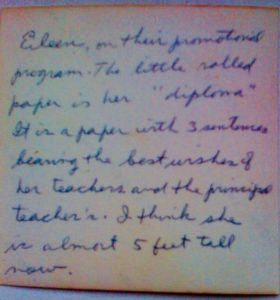 Eileen, on their promotional
program. The little rolled
paper is her "diploma"
It is a paper with 3 sentences
bearing the best wishes of
her teachers and the principal
teacher's. I think she
is almost 5 feet tall
now.